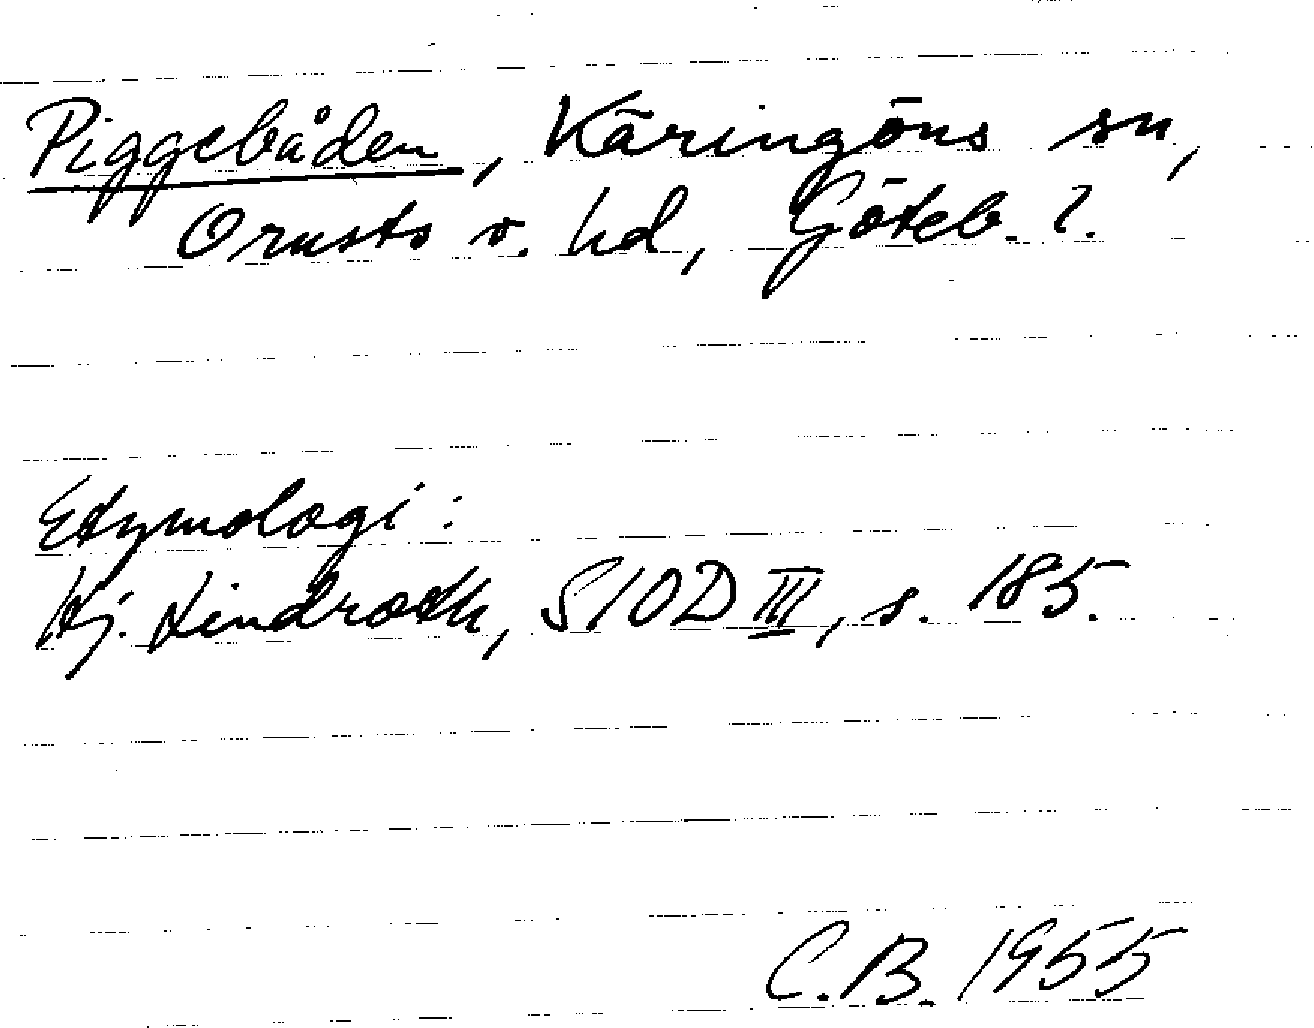 Piggebåden, Käringöns sn,
Orusts v. hd, Göteb. l.
Etymologi:
Hj. Lindroth, SIOD III, s. 185.
C.B. 1955